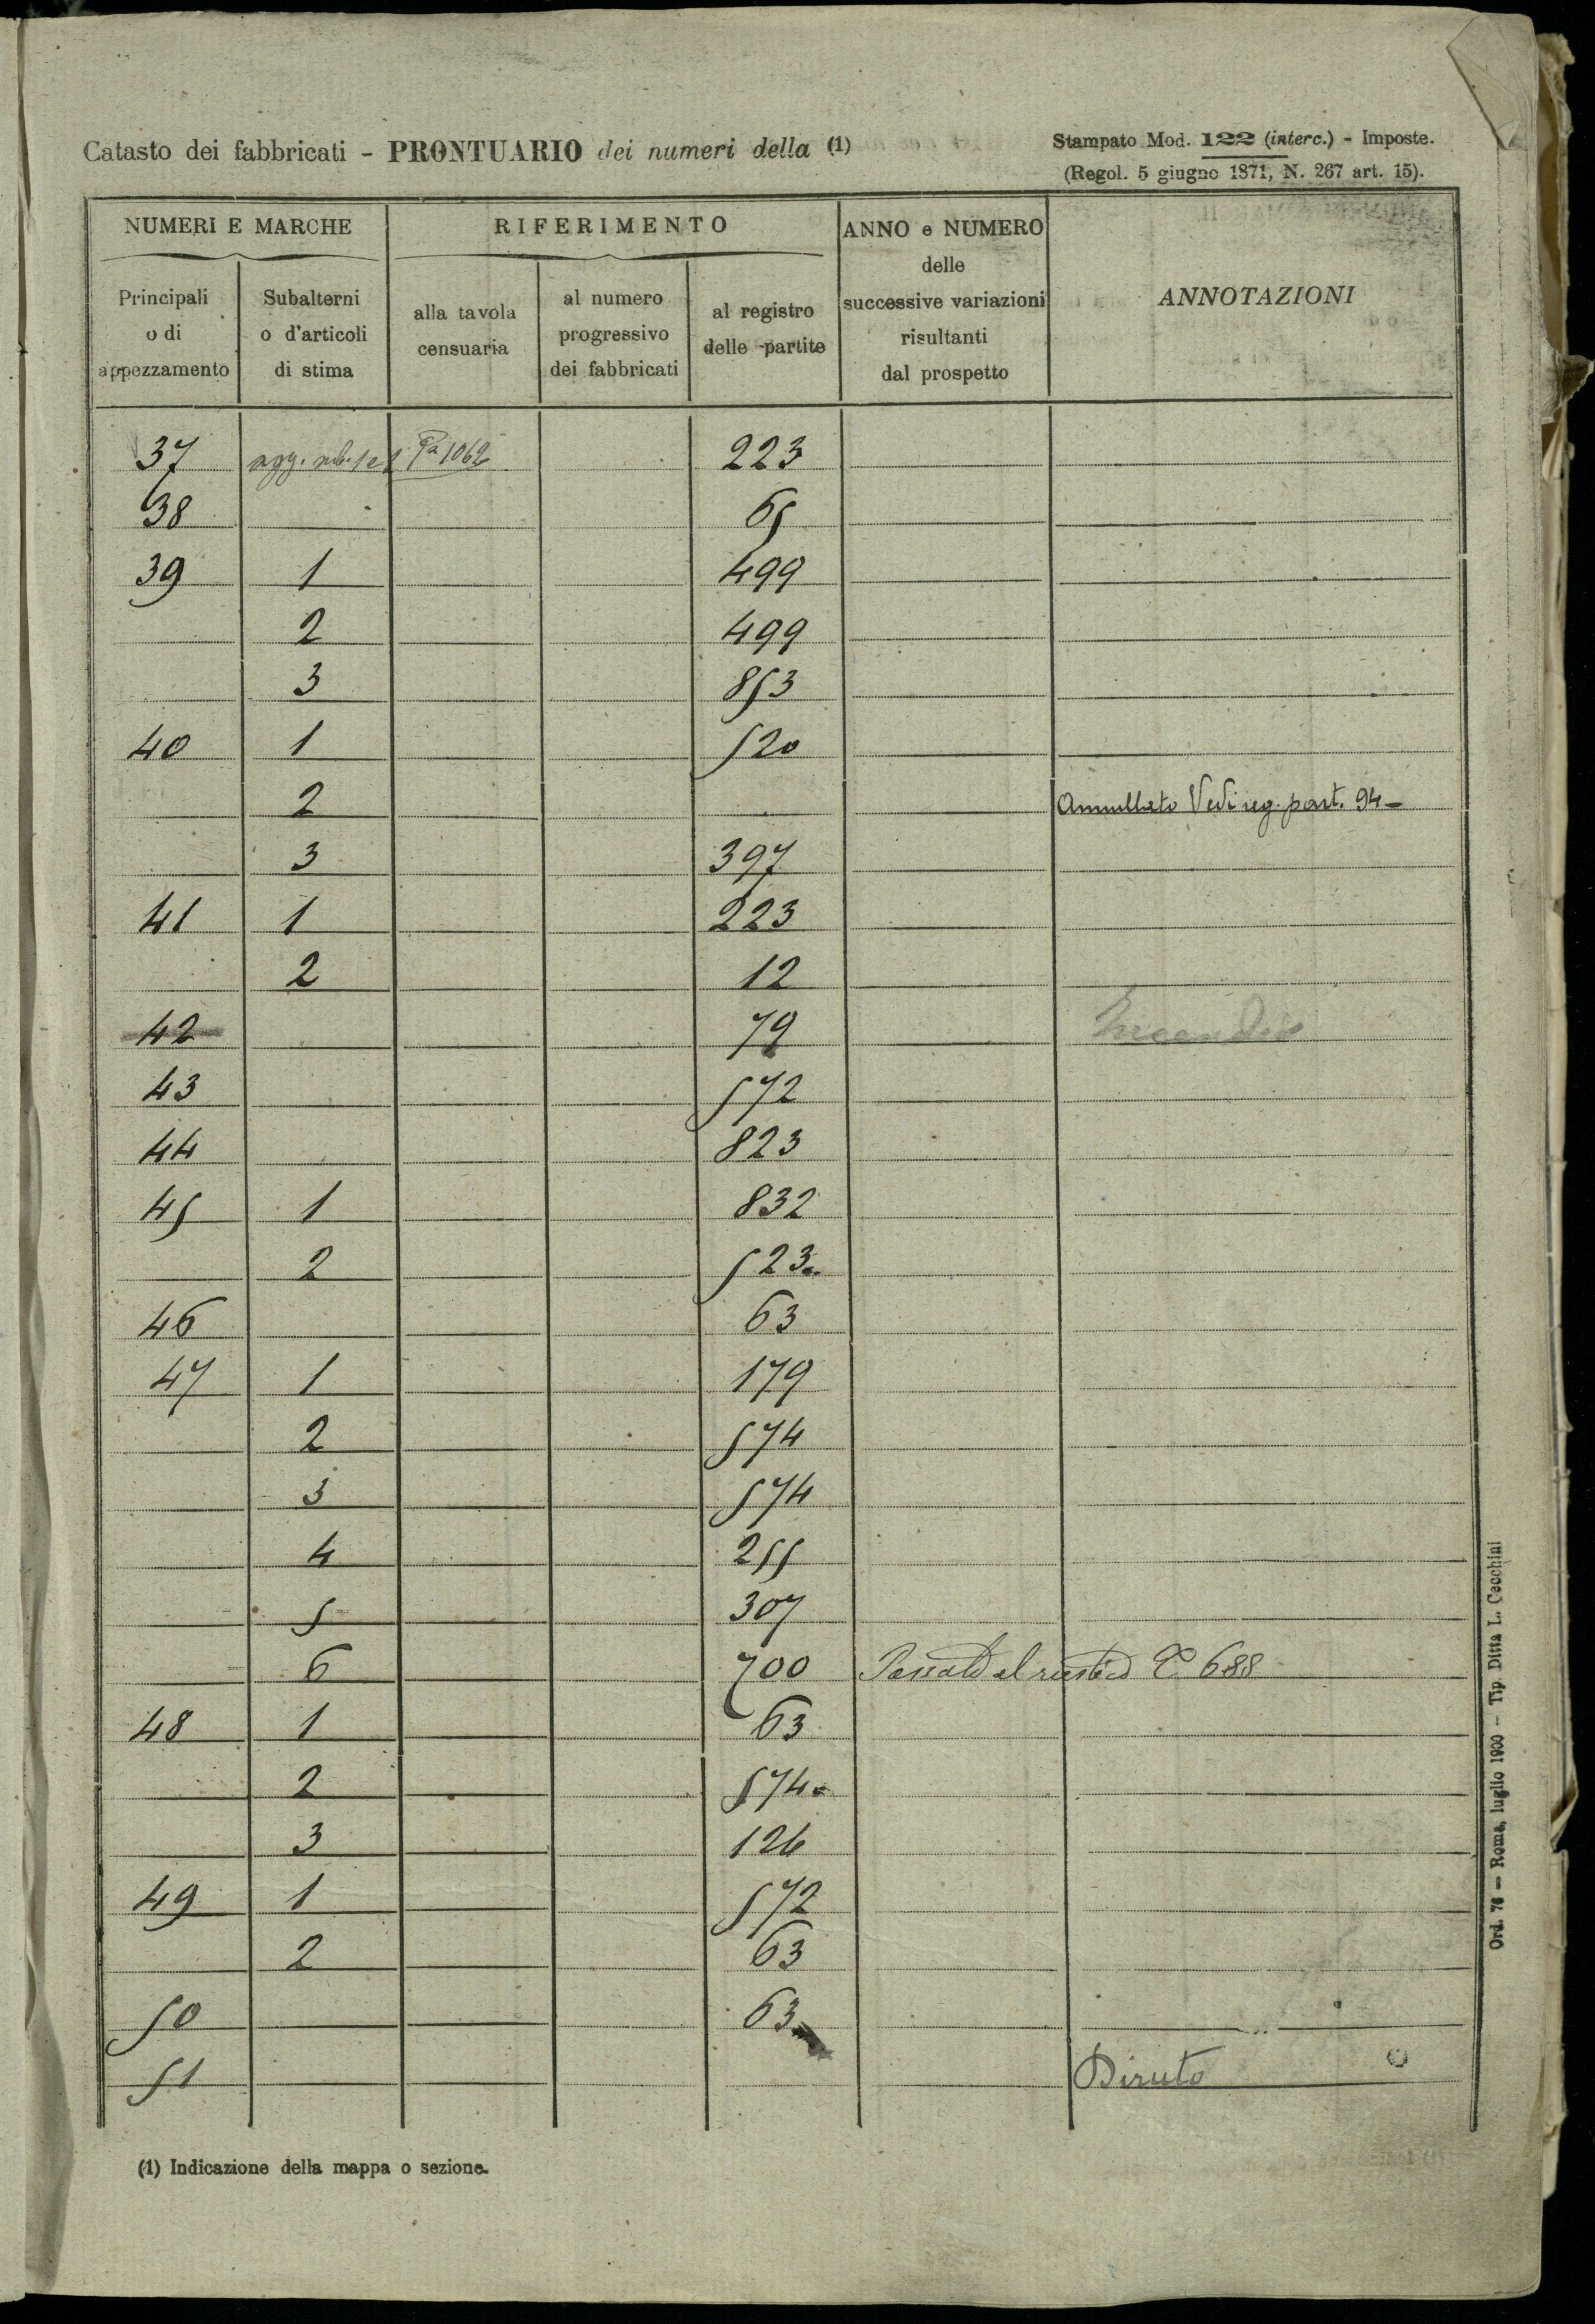 Catasto dei fabbricati - PRONTUARIO dei numeri della (1)
Stampato Mod. 122 (interc.) - Imposte.
(Regol. 5 giugno 1871, N. 267 art. 15).
NUMERI E MARCHE
RIFERIMENTO
ANNO e NUMERO
delle
successive variazioni
risultanti
dal prospetto
ANNOTAZIONI
Principali
o di
appezzamento
Subalterni
o d'articoli
di stima
alla tavola
censuaria
al numero
progressivo
dei fabbricati
al registro
delle partite
37 agg. sub. 1 e 2 Pa 1062 223
38 65
39 1 499
2 499
3 853
40 1 520
2 Annullato Vedi reg. part. 94 -
3 397
41 1 223
2 12
42 79
43 572
44 823
45 1 832
2 523
46 63
47 1 179
2 574
3 574
4 255
5 307
6 700 Passato al rustico P. 688
48 1 63
2 574
3 126
49 1 572
2 63
50 63
51 Diruto
(1) Indicazione della mappa o sezione.
Ord. 76 - Roma, luglio 1900 - Tip. Ditta L. Cecchini